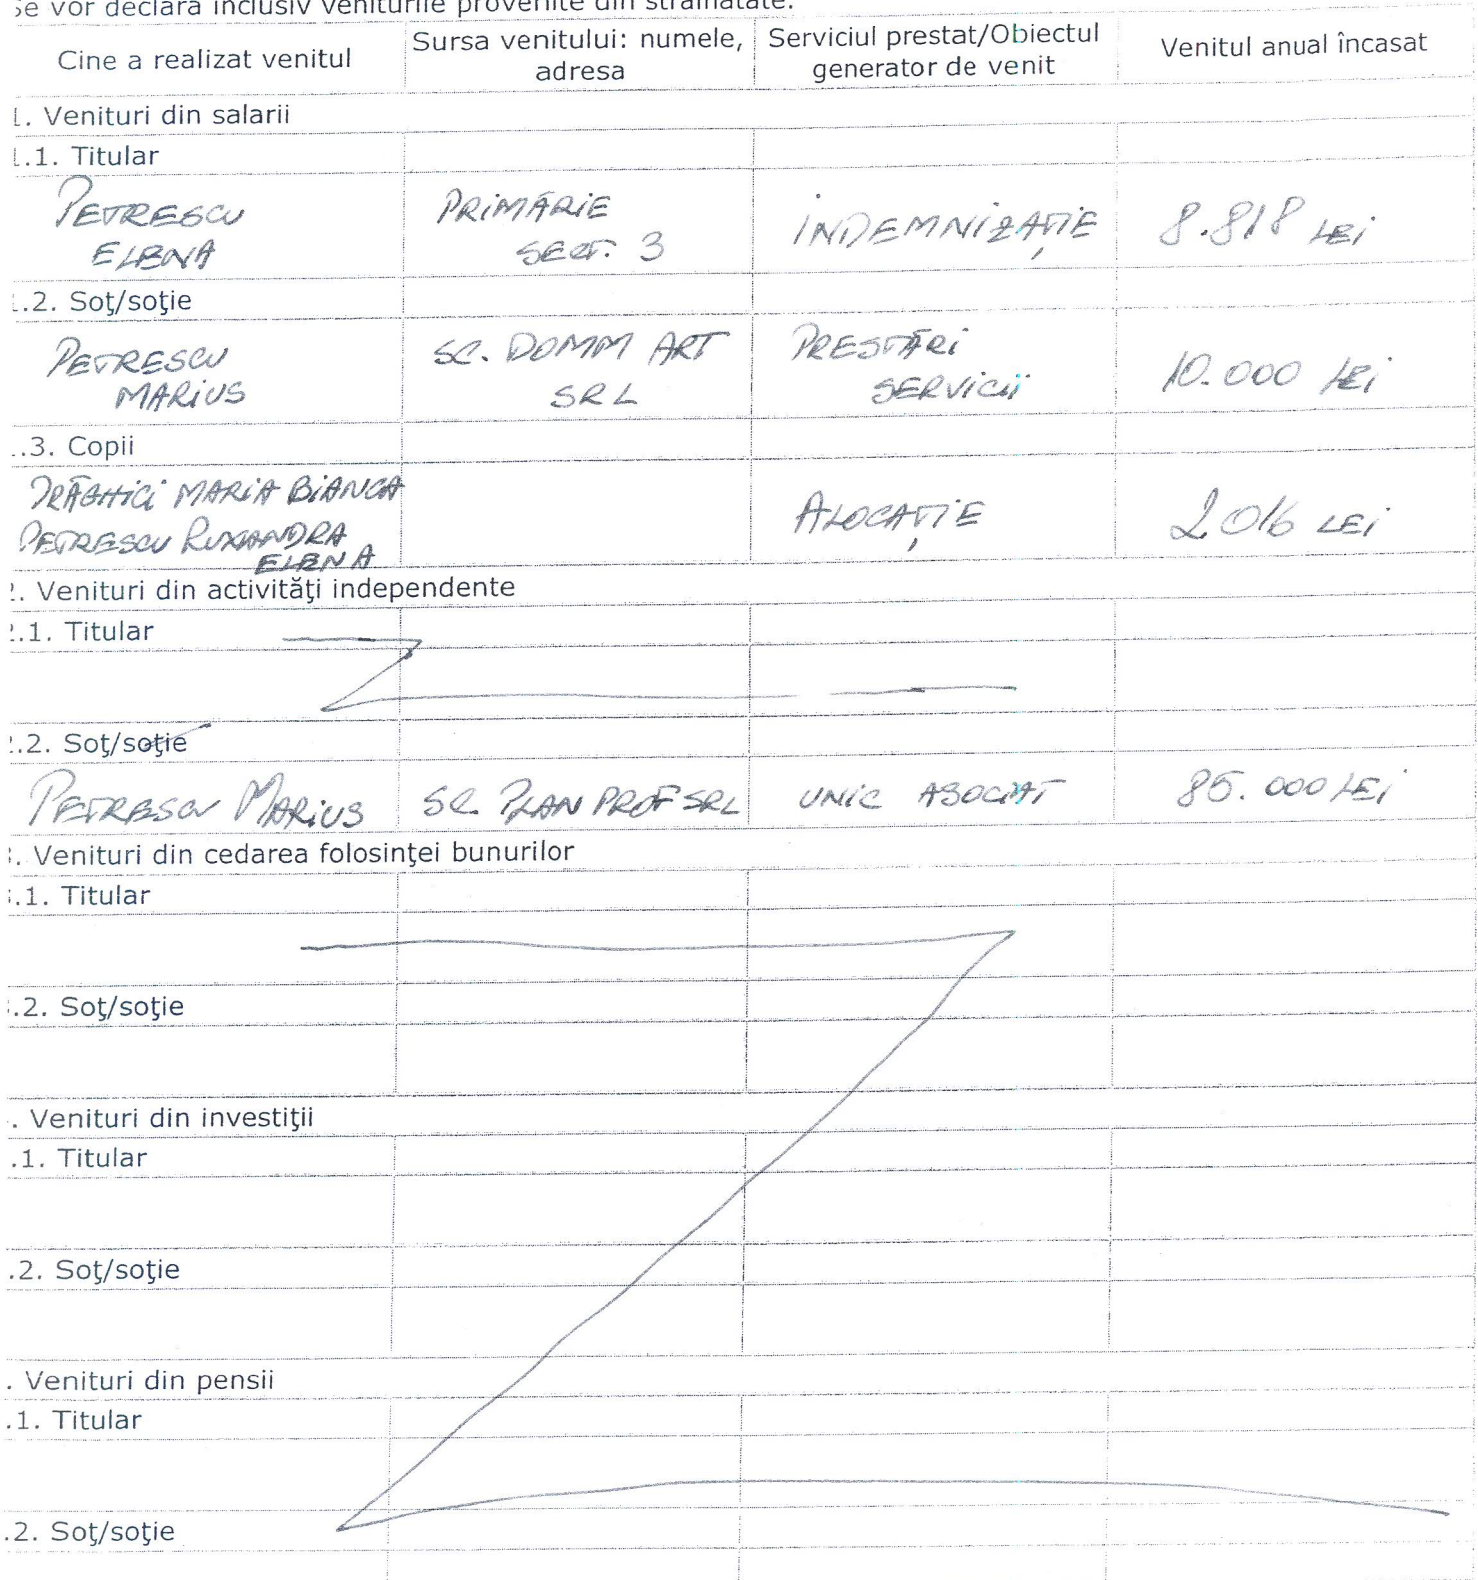 se vor declara inclusiv veniturile provenite din străinătate.
Cine a realizat venitul
Sursa venitului: numele,
adresa
Serviciul prestat/Obiectul
generator de venit
Venitul anual încasat
1. Venituri din salarii
1.1. Titular
PETRESCU
ELENA
PRIMĂRIE
SECT. 3
INDEMNIZAȚIE
8.818 LEI
.2. Soţ/soţie
PETRESCU
MARIUS
SC. DOMM ART
SRL
PRESTĂRI
SERVICII
10.000 LEI
.3. Copii
DRĂGHICI MARIA BIANCA
PETRESCU RUXANDRA
ELENA
ALOCAȚIE
2.016 LEI
2. Venituri din activităţi independente
2.1. Titular
2.2. Soţ/soţie
PETRESCU MARIUS
SC. PLAN PROF SRL
UNIC ASOCIAT
85.000 LEI
. Venituri din cedarea folosinţei bunurilor
.1. Titular
.2. Soţ/soţie
. Venituri din investiţii
.1. Titular
.2. Soţ/soţie
. Venituri din pensii
.1. Titular
.2. Soţ/soţie